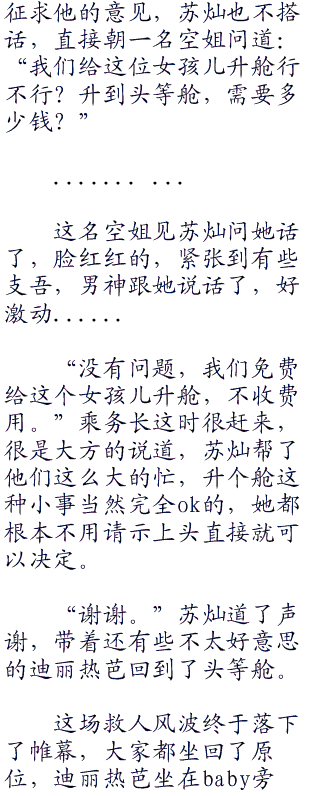 征求他的意见，苏灿也不搭
话，直接朝一名空姐问道：
“我们给这位女孩儿升舱行
不行？升到头等舱，需要多
少钱？”
....... ...
这名空姐见苏灿问她话
了，脸红红的，紧张到有些
支吾，男神跟她说话了，好
激动......
“没有问题，我们免费
给这个女孩儿升舱，不收费
用。”乘务长这时很赶来，
很是大方的说道，苏灿帮了
他们这么大的忙，升个舱这
种小事当然完全ok的，她都
根本不用请示上头直接就可
以决定。
“谢谢。”苏灿道了声
谢，带着还有些不太好意思
的迪丽热芭回到了头等舱。
这场救人风波终于落下
了帷幕，大家都坐回了原
位，迪丽热芭坐在baby旁